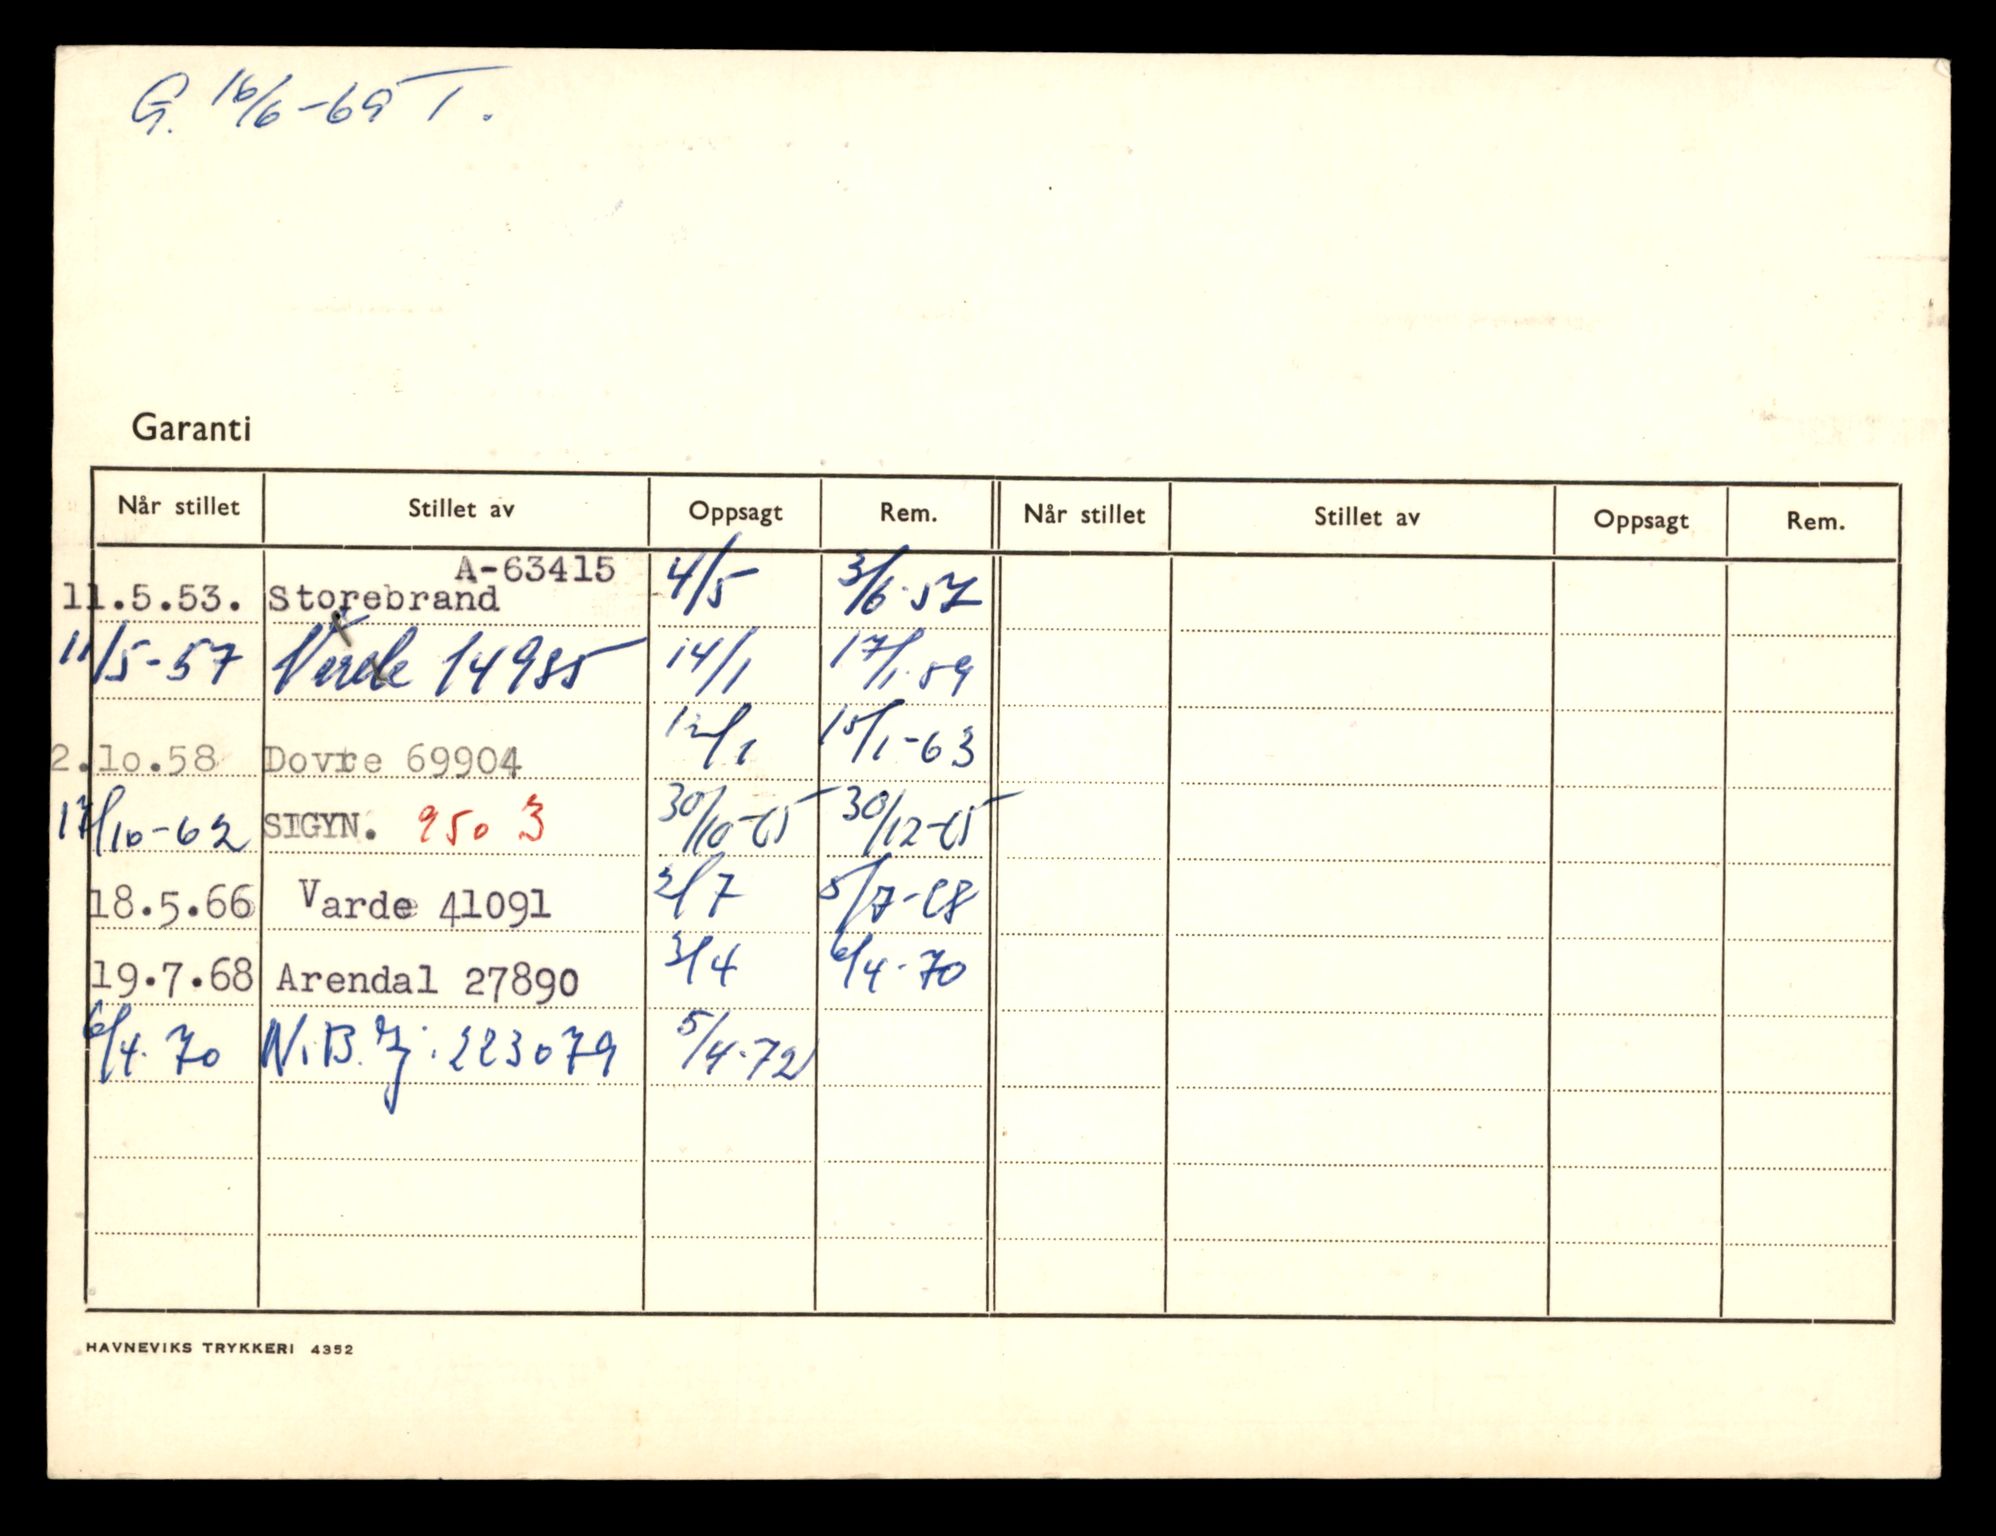 G. 16/6-69 T.
Garanti
Når stillet Stillet av Oppsagt Rem. Når stillet Stillet av Oppsagt Rem.
A-63415
11.5.53. Storebrand 4/5 3/6-57
11/5-57 Varde 14985 14/1 17/1-59
2.10.58 Dovre 69904 12/1 15/1-63
17/10-62 SIGYN. 9503 30/10-65 30/12-65
18.5.66 Varde 41091 2/7 5/7-68
19.7.68 Arendal 27890 3/4 6/4-70
6/4-70 N.B. 223079 5/4-72
HAVNEVIKS TRYKKERI 4352